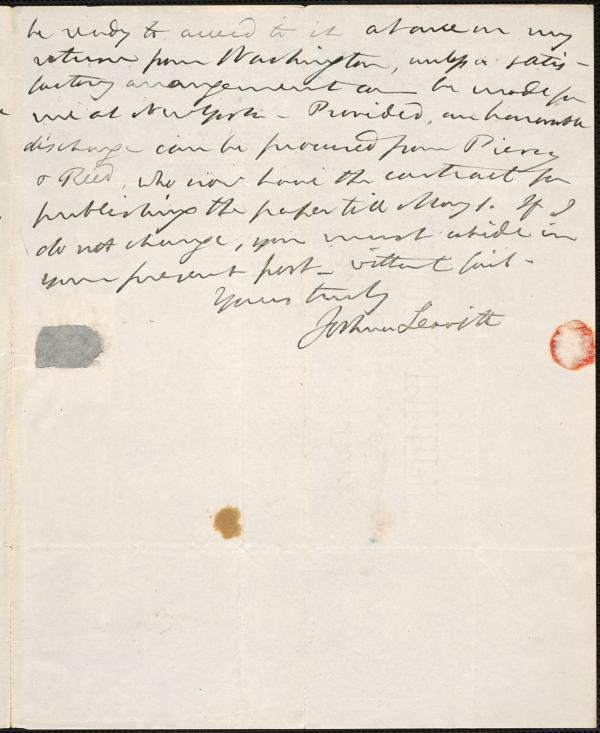 be ready to accede to it at once on my
return from Washington, unless a satis-
factory arrangement can be made for
me at New York - Provided, an honorable
discharge can be procured from Piercy
& Reed, who now have the contract for
publishing the paper till May 1. If I
do not change, you must abide in
your present post - without fail -
Yours truly
Joshua Leavitt